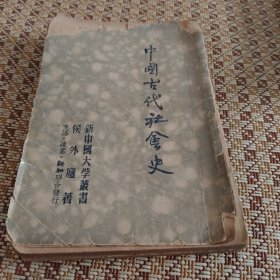 中國古代社會史
新中國大學叢書
侯外廬著
生活·讀書·新知聯合發行